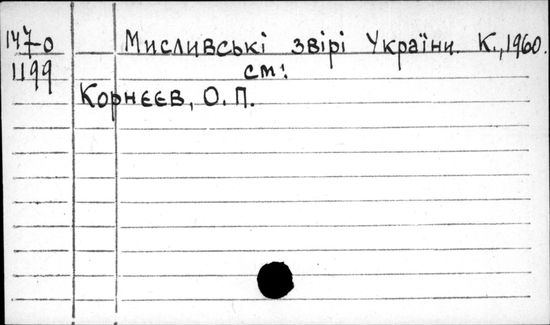 147-0 Мисливські звірі України К., 1960.
1199 см:
Корнєєв, О. П.